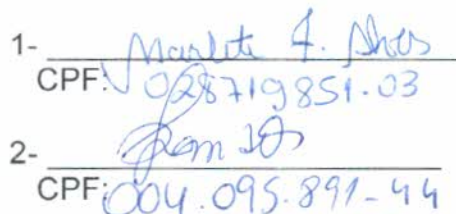 1- Marlete F. Alves
CPF: 028719851-03
2-
CPF: 004.095.891-44